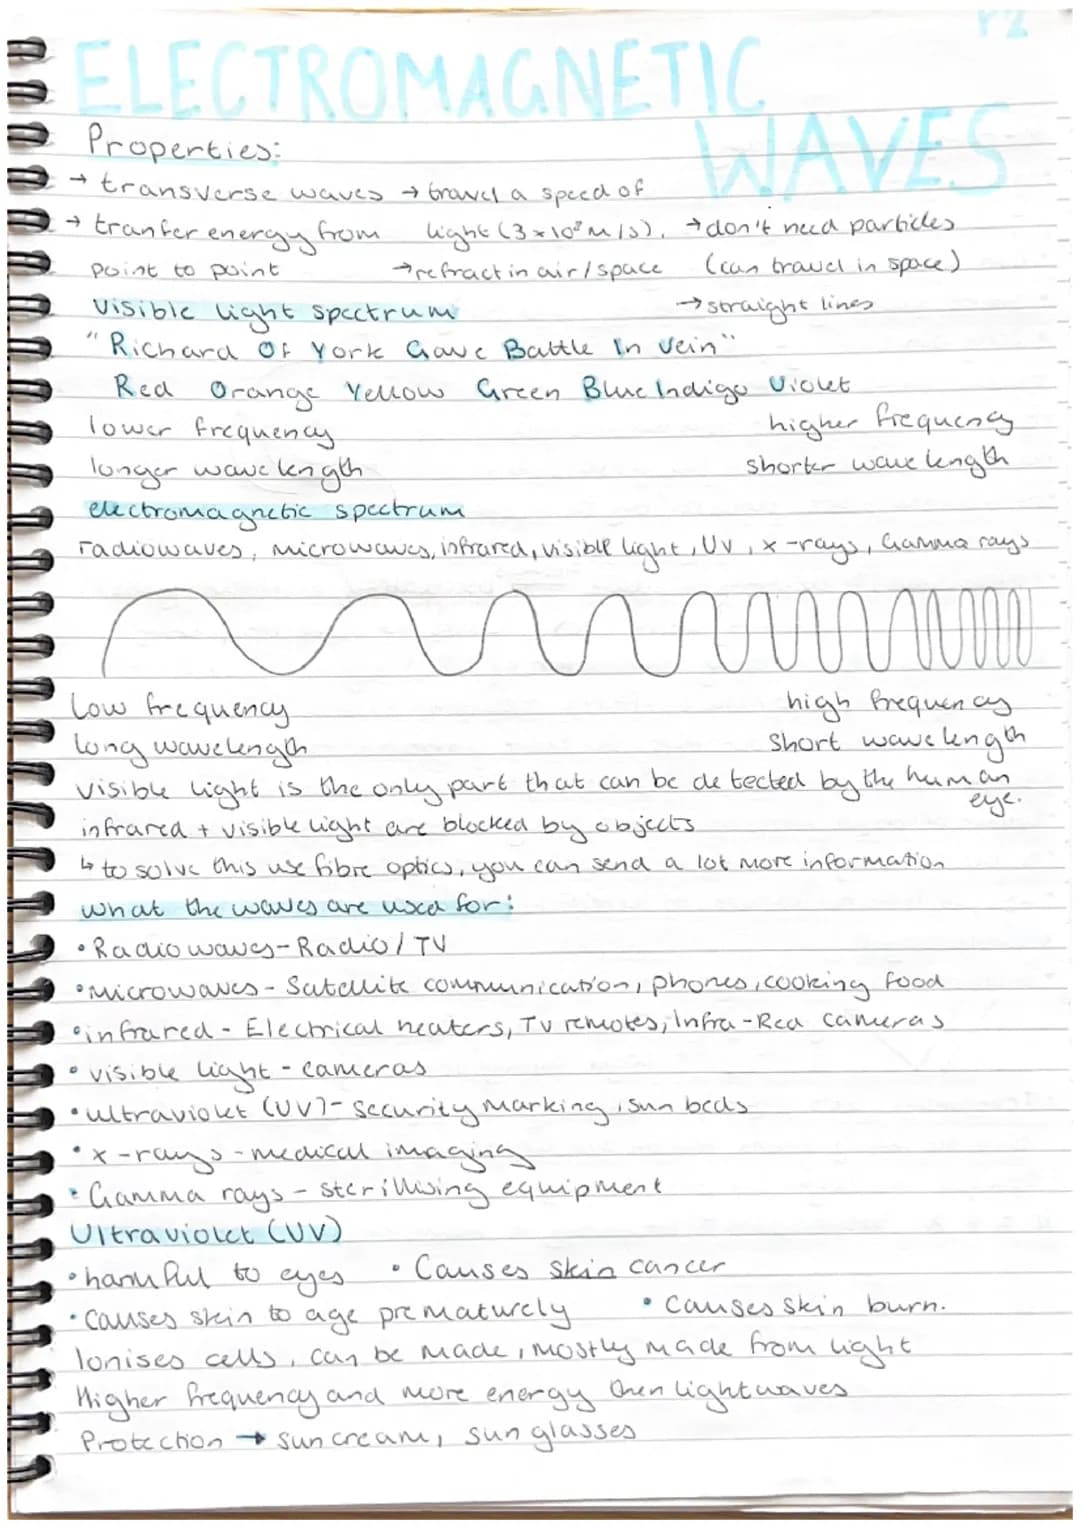 P2
ELECTROMAGNETIC
WAVES
Properties:
→ transverse waves → travel a speed of
→ tranfer energy from light (3×10⁸ m/s). → don't need particles
point to point → refract in air/space (can travel in space)
→ straight lines
Visible light spectrum
"Richard Of York Gave Battle In Vein"
Red Orange Yellow Green Blue Indigo Violet
lower frequency higher frequency
longer wavelength shorter wavelength
electromagnetic spectrum
radiowaves, microwaves, infrared, visible light, UV, x-rays, Gamma rays
low frequency high frequency
long wavelength short wavelength
visible light is the only part that can be detected by the human
eye.
infrared + visible light are blocked by objects
↳ to solve this use fibre optics, you can send a lot more information
What the waves are used for:
• Radio waves - Radio / TV
• microwaves - Satellite communication, phones, cooking food
• infrared - Electrical heaters, TV remotes, Infra-Red cameras
• visible light - cameras
• ultraviolet (UV) - security marking, sun beds
• x-rays - medical imaging
• Gamma rays - sterillising equipment
Ultraviolet (UV)
• harmful to eyes • Causes skin cancer
• Causes skin to age prematurely • Causes skin burn.
Ionises cells, can be made, mostly made from light
Higher frequency and more energy then lightwaves
Protection → suncream, sunglasses